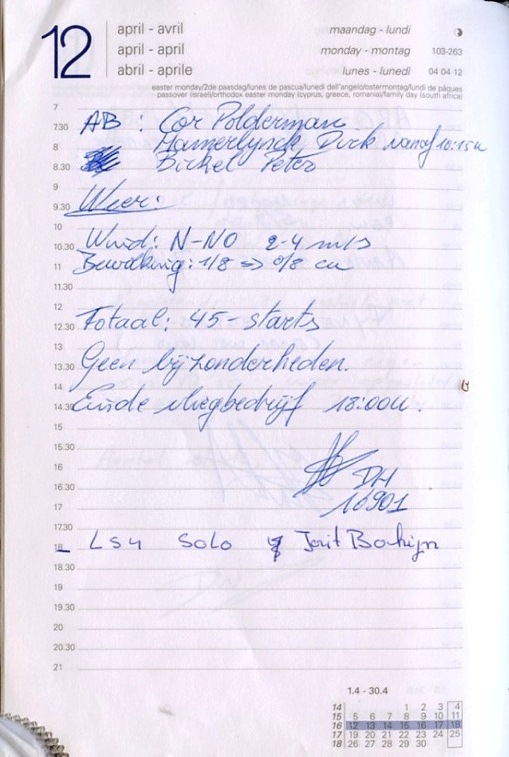 12
april - avril
april - april
abril - aprile
maandag - lundi
monday - montag 103-263
lunes - lunedì 04 04 12
easter monday/2de paasdag/lunes de pascua/lunedì dell'angelo/ostermontag/lundi de pâques
passover (israel)/orthodox easter monday (cyprus, greece, romania)/family day (south africa)
7
7.30 AB : Cor Polderman
8 Hamerlynck, Dirk vanaf 10:15u
8.30 Birkel Peter
9
9.30 Weer:
10
10.30 Wind: N-NO 2-4 m/s
11 Bewolking: 1/8 => 0/8 cu
11.30
12
12.30 Totaal: 45-starts
13
13.30 Geen bijzonderheden.
14
14.30 Einde vliegbedrijf 18:00u.
15
15.30
16 DH
16.30 16901
17
17.30
18 LS4 SOLO Jorit
18.30
19
19.30
20
20.30
21
1.4 - 30.4
14 1 2 3 4
15 5 6 7 8 9 10 11
16 12 13 14 15 16 17 18
17 19 20 21 22 23 24 25
18 26 27 28 29 30